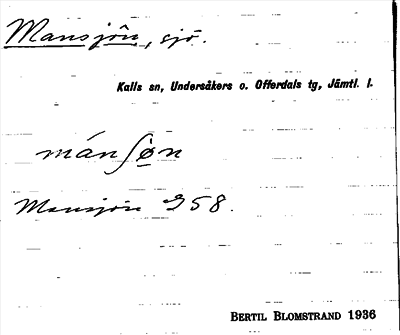 Mansjön, sjö.
Kalls sn, Undersåkers o. Offerdals tg, Jämtl. l.
mánʃøn
Mansjön G58.
BERTIL BLOMSTRAND 1936